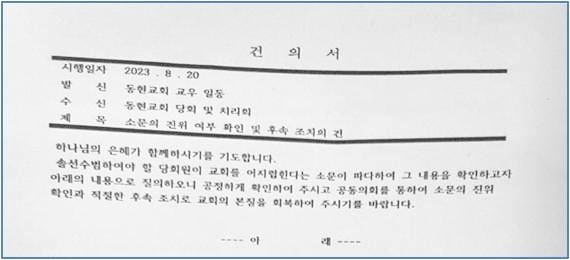 건 의 서
시행일자 2023 . 8 . 20
발 신 동현교회 교우 일동
수 신 동현교회 당회 및 치리회
제 목 소문의 진위 여부 확인 및 후속 조치의 건
하나님의 은혜가 함께하시기를 기도합니다.
솔선수범하여야 할 당회원이 교회를 어지럽힌다는 소문이 파다하여 그 내용을 확인하고자
아래의 내용으로 질의하오니 공정하게 확인하여 주시고 공동의회를 통하여 소문의 진위
확인과 적절한 후속 조치로 교회의 본질을 회복하여 주시기를 바랍니다.
---- 아 래 ----